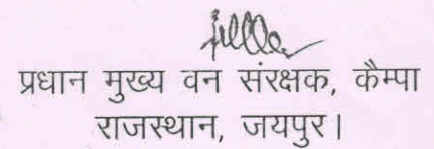 प्रधान मुख्य वन संरक्षक, कैम्पा
राजस्थान, जयपुर।